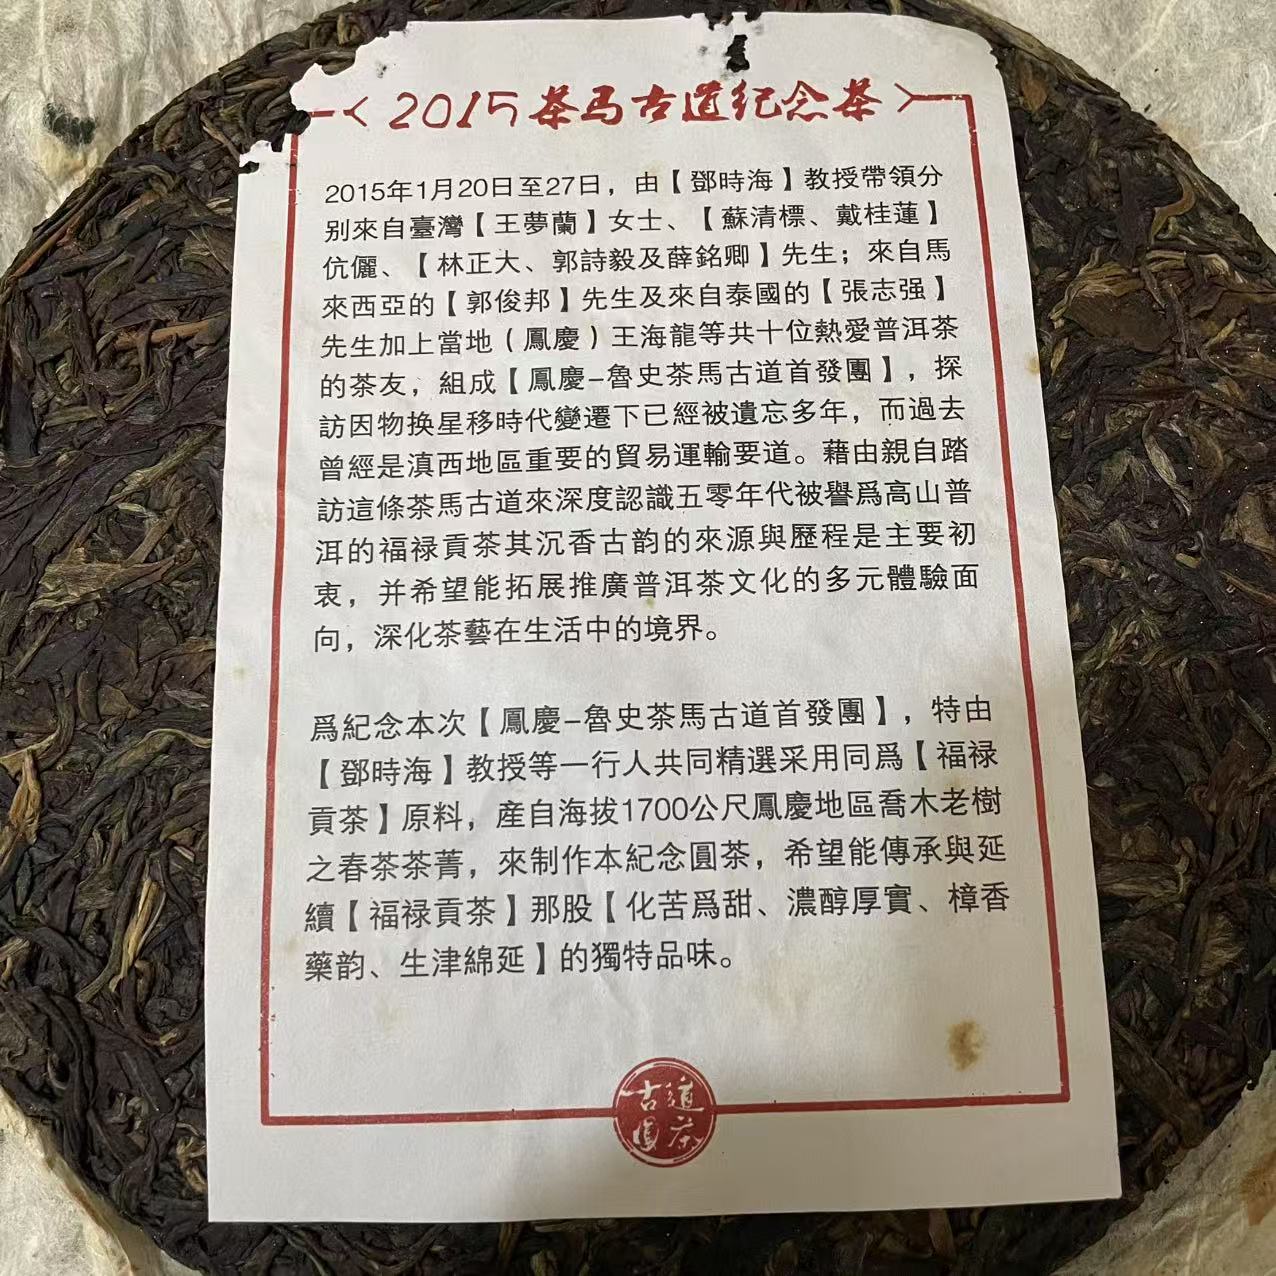 2015茶马古道纪念茶
2015年1月20日至27日，由【鄧時海】教授帶領分
别來自臺灣【王夢蘭】女士、【蘇清標、戴桂蓮】
伉儷、【林正大、郭詩毅及薛銘卿】先生；來自馬
來西亞的【郭俊邦】先生及來自泰國的【張志强】
先生加上當地（鳳慶）王海龍等共十位熱愛普洱茶
的茶友，組成【鳳慶–魯史茶馬古道首發團】，探
訪因物换星移時代變遷下已經被遺忘多年，而過去
曾經是滇西地區重要的貿易運輸要道。藉由親自踏
訪這條茶馬古道來深度認識五零年代被譽爲高山普
洱的福禄貢茶其沉香古韵的來源與歷程是主要初
衷，并希望能拓展推廣普洱茶文化的多元體驗面
向，深化茶藝在生活中的境界。
爲紀念本次【鳳慶–魯史茶馬古道首發團】，特由
【鄧時海】教授等一行人共同精選采用同爲【福禄
貢茶】原料，産自海拔1700公尺鳳慶地區喬木老樹
之春茶茶菁，來制作本紀念圓茶，希望能傳承與延
續【福禄貢茶】那股【化苦爲甜、濃醇厚實、樟香
藥韵、生津綿延】的獨特品味。
古道
圓茶